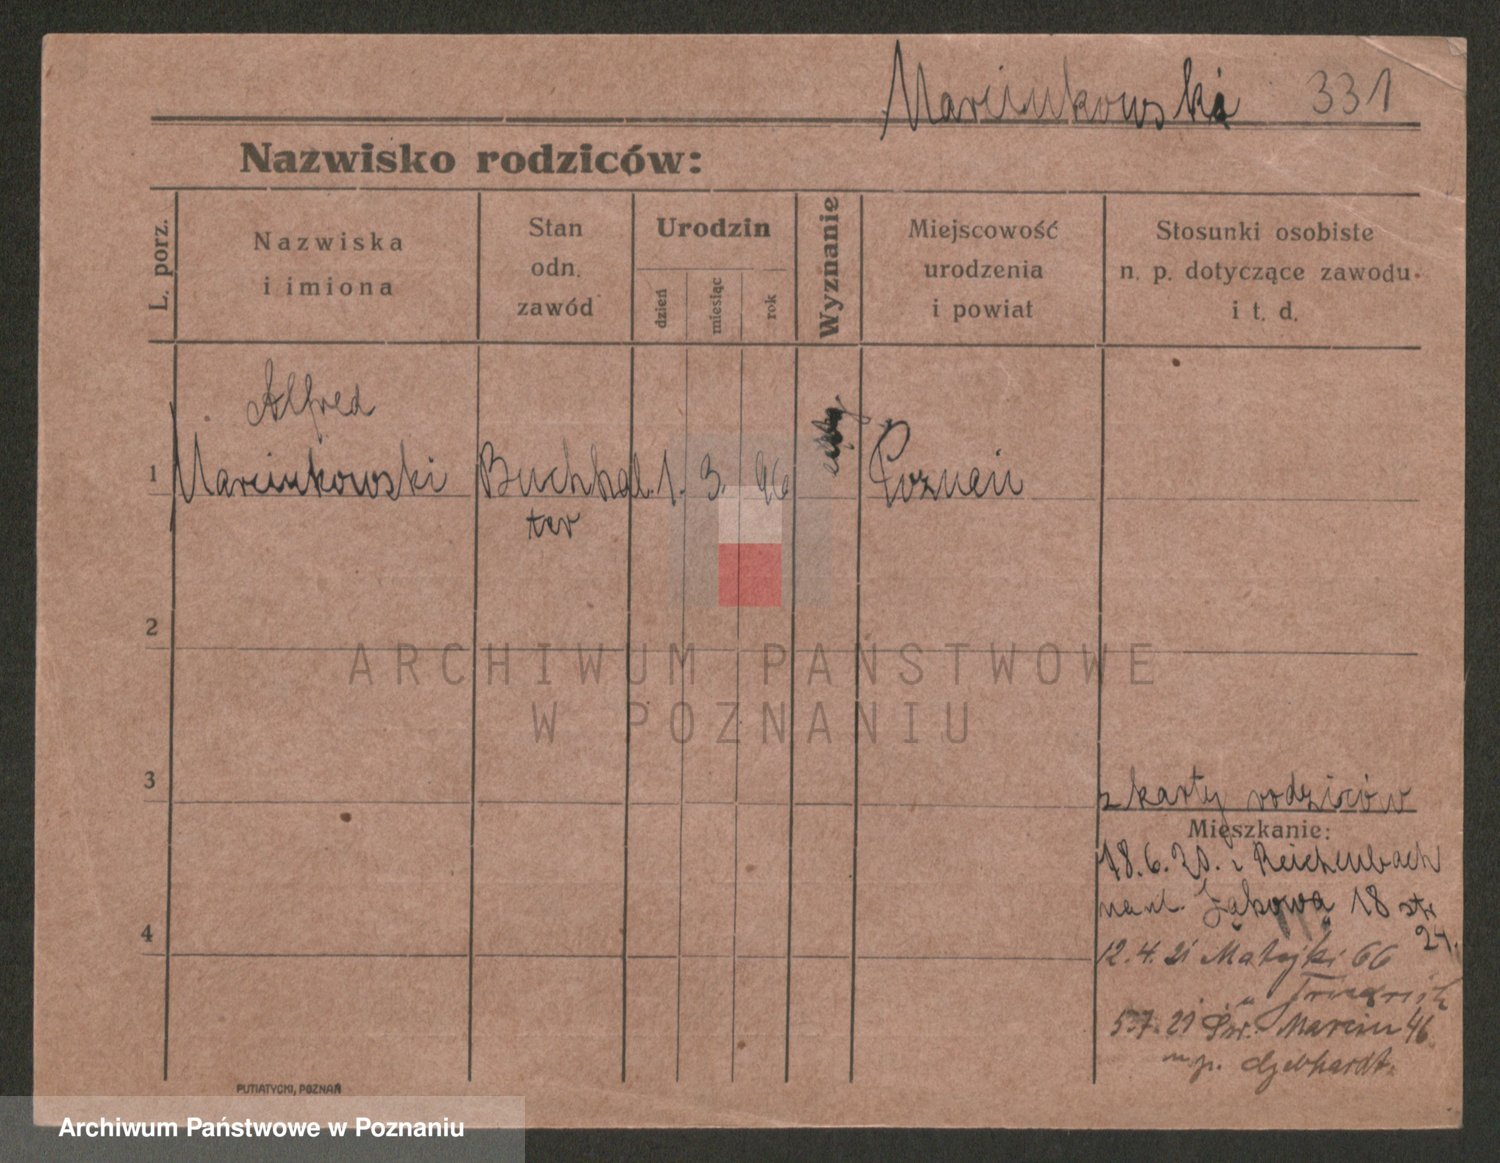 Marcinkowski 331
Nazwisko rodziców:
L. porz.
Nazwiska
i imiona
Stan
odn.
zawód
Urodzin
dzień
miesiąc
rok
Wyznanie
Miejscowość
urodzenia
i powiat
Stosunki osobiste
n. p. dotyczące zawodu
i t. d.
Alfred
1 Marcinkowski Buchhal. 1. 3. 96 Poznań
ter
2
ARCHIWUM PAŃSTWOWE
W POZNANIU
3
z karty rodziców
Mieszkanie:
18.6.20. Reichenbach
Łąkowa 18
24.
4
12.4.21 Matejki 66
" Friedrich
5.7.21 Św. Marcin 46
Gebhardt
PUTIATYCKI, POZNAŃ
Archiwum Państwowe w Poznaniu